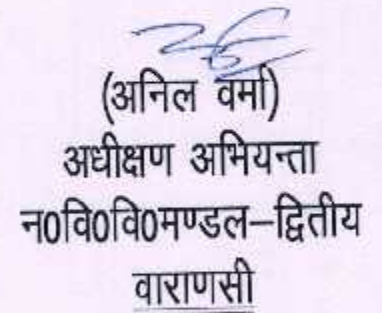 (अनिल वर्मा)
अधीक्षण अभियन्ता
न0वि0वि0मण्डल–द्वितीय
वाराणसी